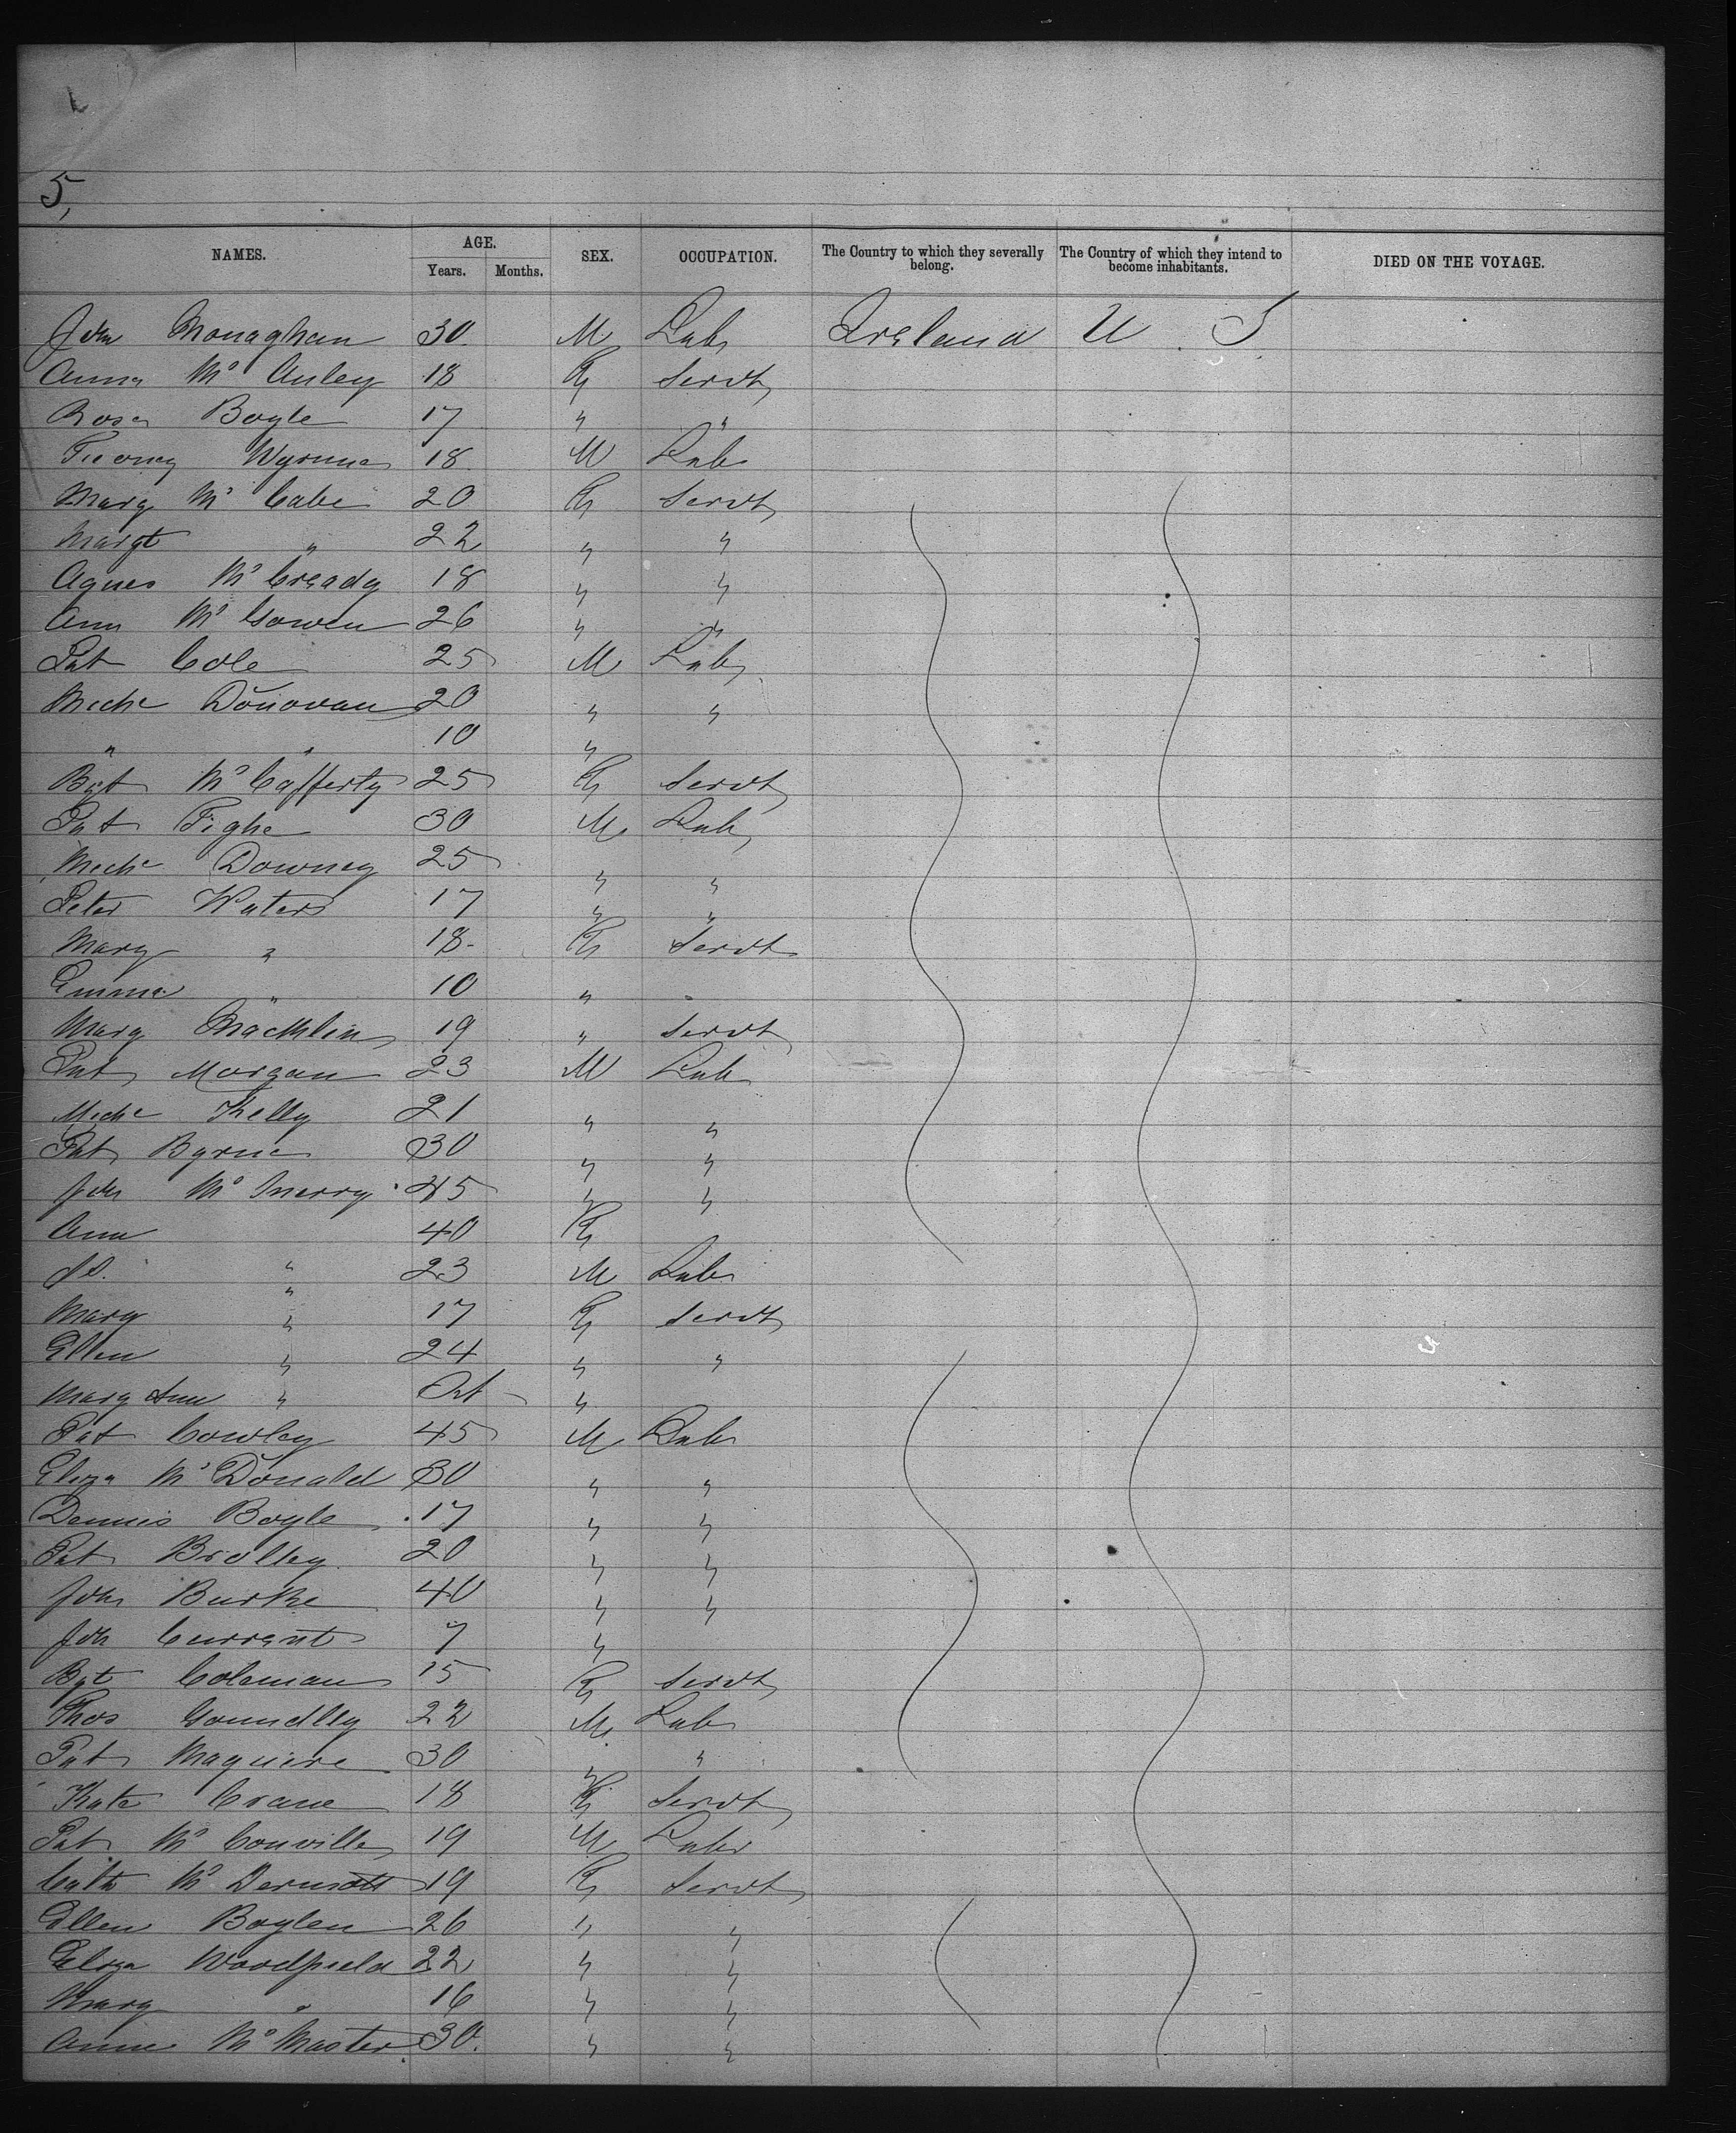 5,
NAMES. AGE. SEX. OCCUPATION. The Country to which they severally belong. The Country of which they intend to become inhabitants. DIED ON THE VOYAGE.
Years. Months.
John Monaghan 30 M Lab Ireland U. S
Anna Mc Auley 18 F Servt
Rose Boyle 17 " "
Wynne 18 M Lab
Mary Mc Cabe 20 F Servt
Margt " 22 " "
Agnes Mc Cready 18 " "
Ann Mc Gowen 26 " "
Pat Cole 25 M Lab
Miche Donovan 20 " "
" " 10 "
Bgt Mc Cafferty 25 F Servt
Pat Tighe 30 M Lab
Miche Downey 25 " "
Peter Waters 17 " "
Mary " 18 F Servt
Emma " 10 "
Mary Macklin 19 " Servt
Pat Morgan 23 M Lab
Miche Kelly 21 " "
Pat Byrne 30 " "
John Mc 45 " "
Ann " 40 F
" 23 M Lab
Mary " 17 F Servt
Ellen " 24 " "
Mary Ann " "
Pat Cowley 45 M Lab
Eliza Mc Donald 30 " "
Dennis Boyle 17 " "
Pat Brolley 20 " "
John Burke 40 " "
John 7 "
Bgt Coleman 15 F Servt
Thos 22 M Lab
Pat Maguire 30 " "
Kate Crane 18 F Servt
Pat Mc Conville 19 M Lab
Cath Mc Dermott 19 F Servt
Ellen Boylen 26 " "
Eliza Woodfield 22 " "
Mary " 16 " "
Annie Mc Master 30 " "